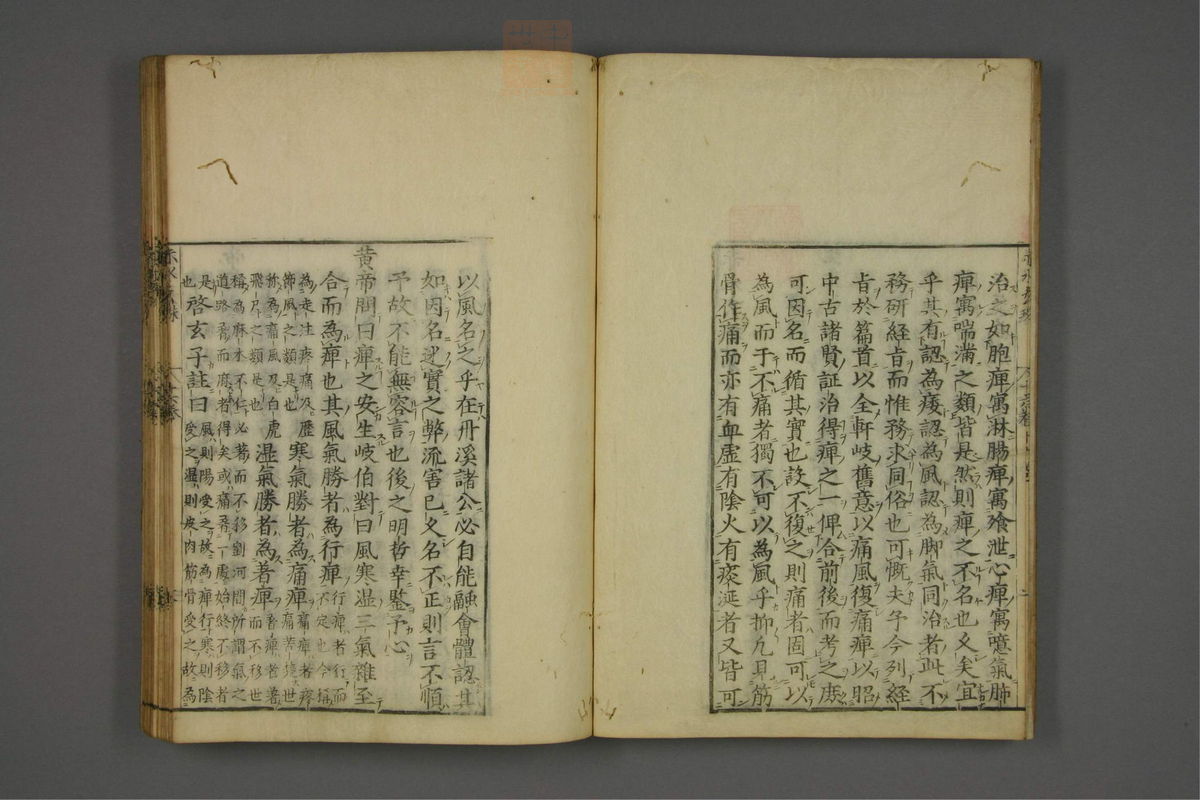 治之如胞痺寓淋腸痺寓飱泄心痺寓噫氣肺
痺寓喘滿之類皆是然則痺之不名也久矣宜
乎其有認為痿認為風認為脚氣同治者此不
務研經旨而惟務求同俗也可慨夫予今列經
旨於篇首以全軒岐舊意以痛風復痛痺以昭
中古諸賢証治得痺之一俾合前後而考之庶
可因名而循其實也設不復之則痛者固可以
為風而于不痛者獨不可以為風乎抑凡耳筋
骨作痛而亦有血虛有陰火有痰涎者又皆可
以風名之乎在丹溪諸公必自能融會體認其
如因名迷實之弊流害已久名不正則言不順
予故不能無容言也後之明哲幸鑒予心
黃帝問曰痺之安生岐伯對曰風寒濕三氣雜至
合而為痺也其風氣勝者為行痺行痺者行而不定也今稱
為走注疼痛及歷節風之類是也寒氣勝者為痛痺痛痺者疼痛苦楚世
称為痛風及白虎飛尸之類是也濕氣勝者為著痺著痺者著而不移世
稱為麻木不仁必著而不移劉河間所謂氣之
道路著而麻者得矣或痛著一處始終不移者
是也啓玄子註曰風則陽受之故為痺行寒則陰
受之濕則皮肉筋骨受之故為